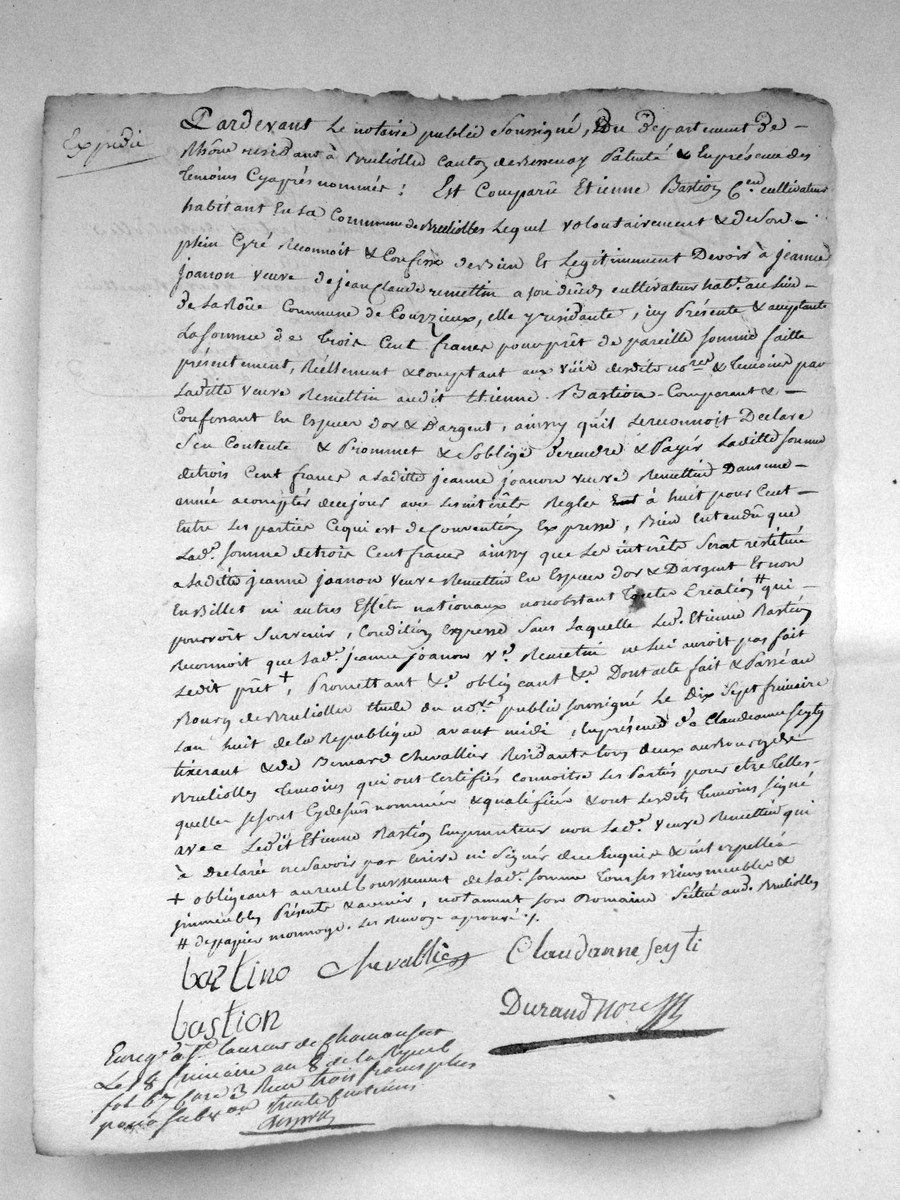 Expedié
Pardevant Le notaire public Soussigné, Du departement de
Rhône residant à Brulliolle canton de Bessenay Patenté & En présence des
temoins Cyaprès nommés : Est Comparû Etienne Bastion C.en cultivateur
habitant En La Commune de Brulliolles Lequel volontairement & de son
plein Gré Reconnoit & Confesse de Bien Et Legitimement Devoir à jeanne
joanon veuve de jean Claude remettin a son décès cultivateur habt. au Lieu
de La Roüe Commune de Courzieux, elle y residante, icy Présente & acceptante
La somme de trois Cent francs pour prêt de pareille somme faitte
présentement, Réellement & comptant aux vüe desdits nore & temoins par
Laditte veuve Remettin audit Etienne Bastion Comparant &
Confessant En Espece dor & Dargent, ainsy qu'il Le reconnoit Declare
S'en Contente & Prommet & Soblige de rendre & Payér Laditte somme
de trois Cent francs a Laditte jeanne joanon veuve Remettin Dans une
année a compter de ce jour avec Les interêts Regles à huit pour Cent
Entre Les parties Ce qui est de Convention Expresse, Bien Entendû que
Lad. somme de trois Cent francs ainsy que Les interêts Serat restituée
a Laditte jeanne joanon veuve Remettin En Espece dor & Dargent Et non
En Billet ni autres Effets nationaux nonobstant toutte Creation # qui
pourroit Survenir, Condition Expresse Sans Laquelle Led. Etienne Bastion
Reconnoit que Lad. jeanne joanon ve. Remettin ne Lui auroit pas fait
Ledit prêt +, Promettant &c obligeant &c Dont acte fait & Passé au
Bourg de Brulliolles Etude du nore public soussigné Le Dix Sept frimaire
Lan huit de La Republique avant midi, En présence de Claudeanne Seyty
tixerant & de Bernard Chevallier Residants tous deux au Bourg de
Brulliolles temoins qui ont Certifiés connoitre Les Parties pour etre telles
quelles se sont Cy depuis nommées & qualifiées & ont Lesdits temoins signé
avec Ledit Etienne Bastion Emprunteur non Lad. veuve Remettin qui
à Declaré ne Savoir par Ecrire ni Signér de ce Enquise & interpellée
+ obligeant au remboursement de Lad. somme tous ses Biens meubles &
jmmeubles Présents & avenir, notament son Domaine Scitué aud. Brulliolles
# de papier monnoye. Les Renvoye aprouvé /.
bartino Chevallier Claudanne Seyti
bastion Durand Nore
Enregé a St. Laurent de Chamousset
Le 18 frimaire an 8 de La Repub
fol 67 Case 3 Reçu trois francs plus
pour Subvon trente centimes